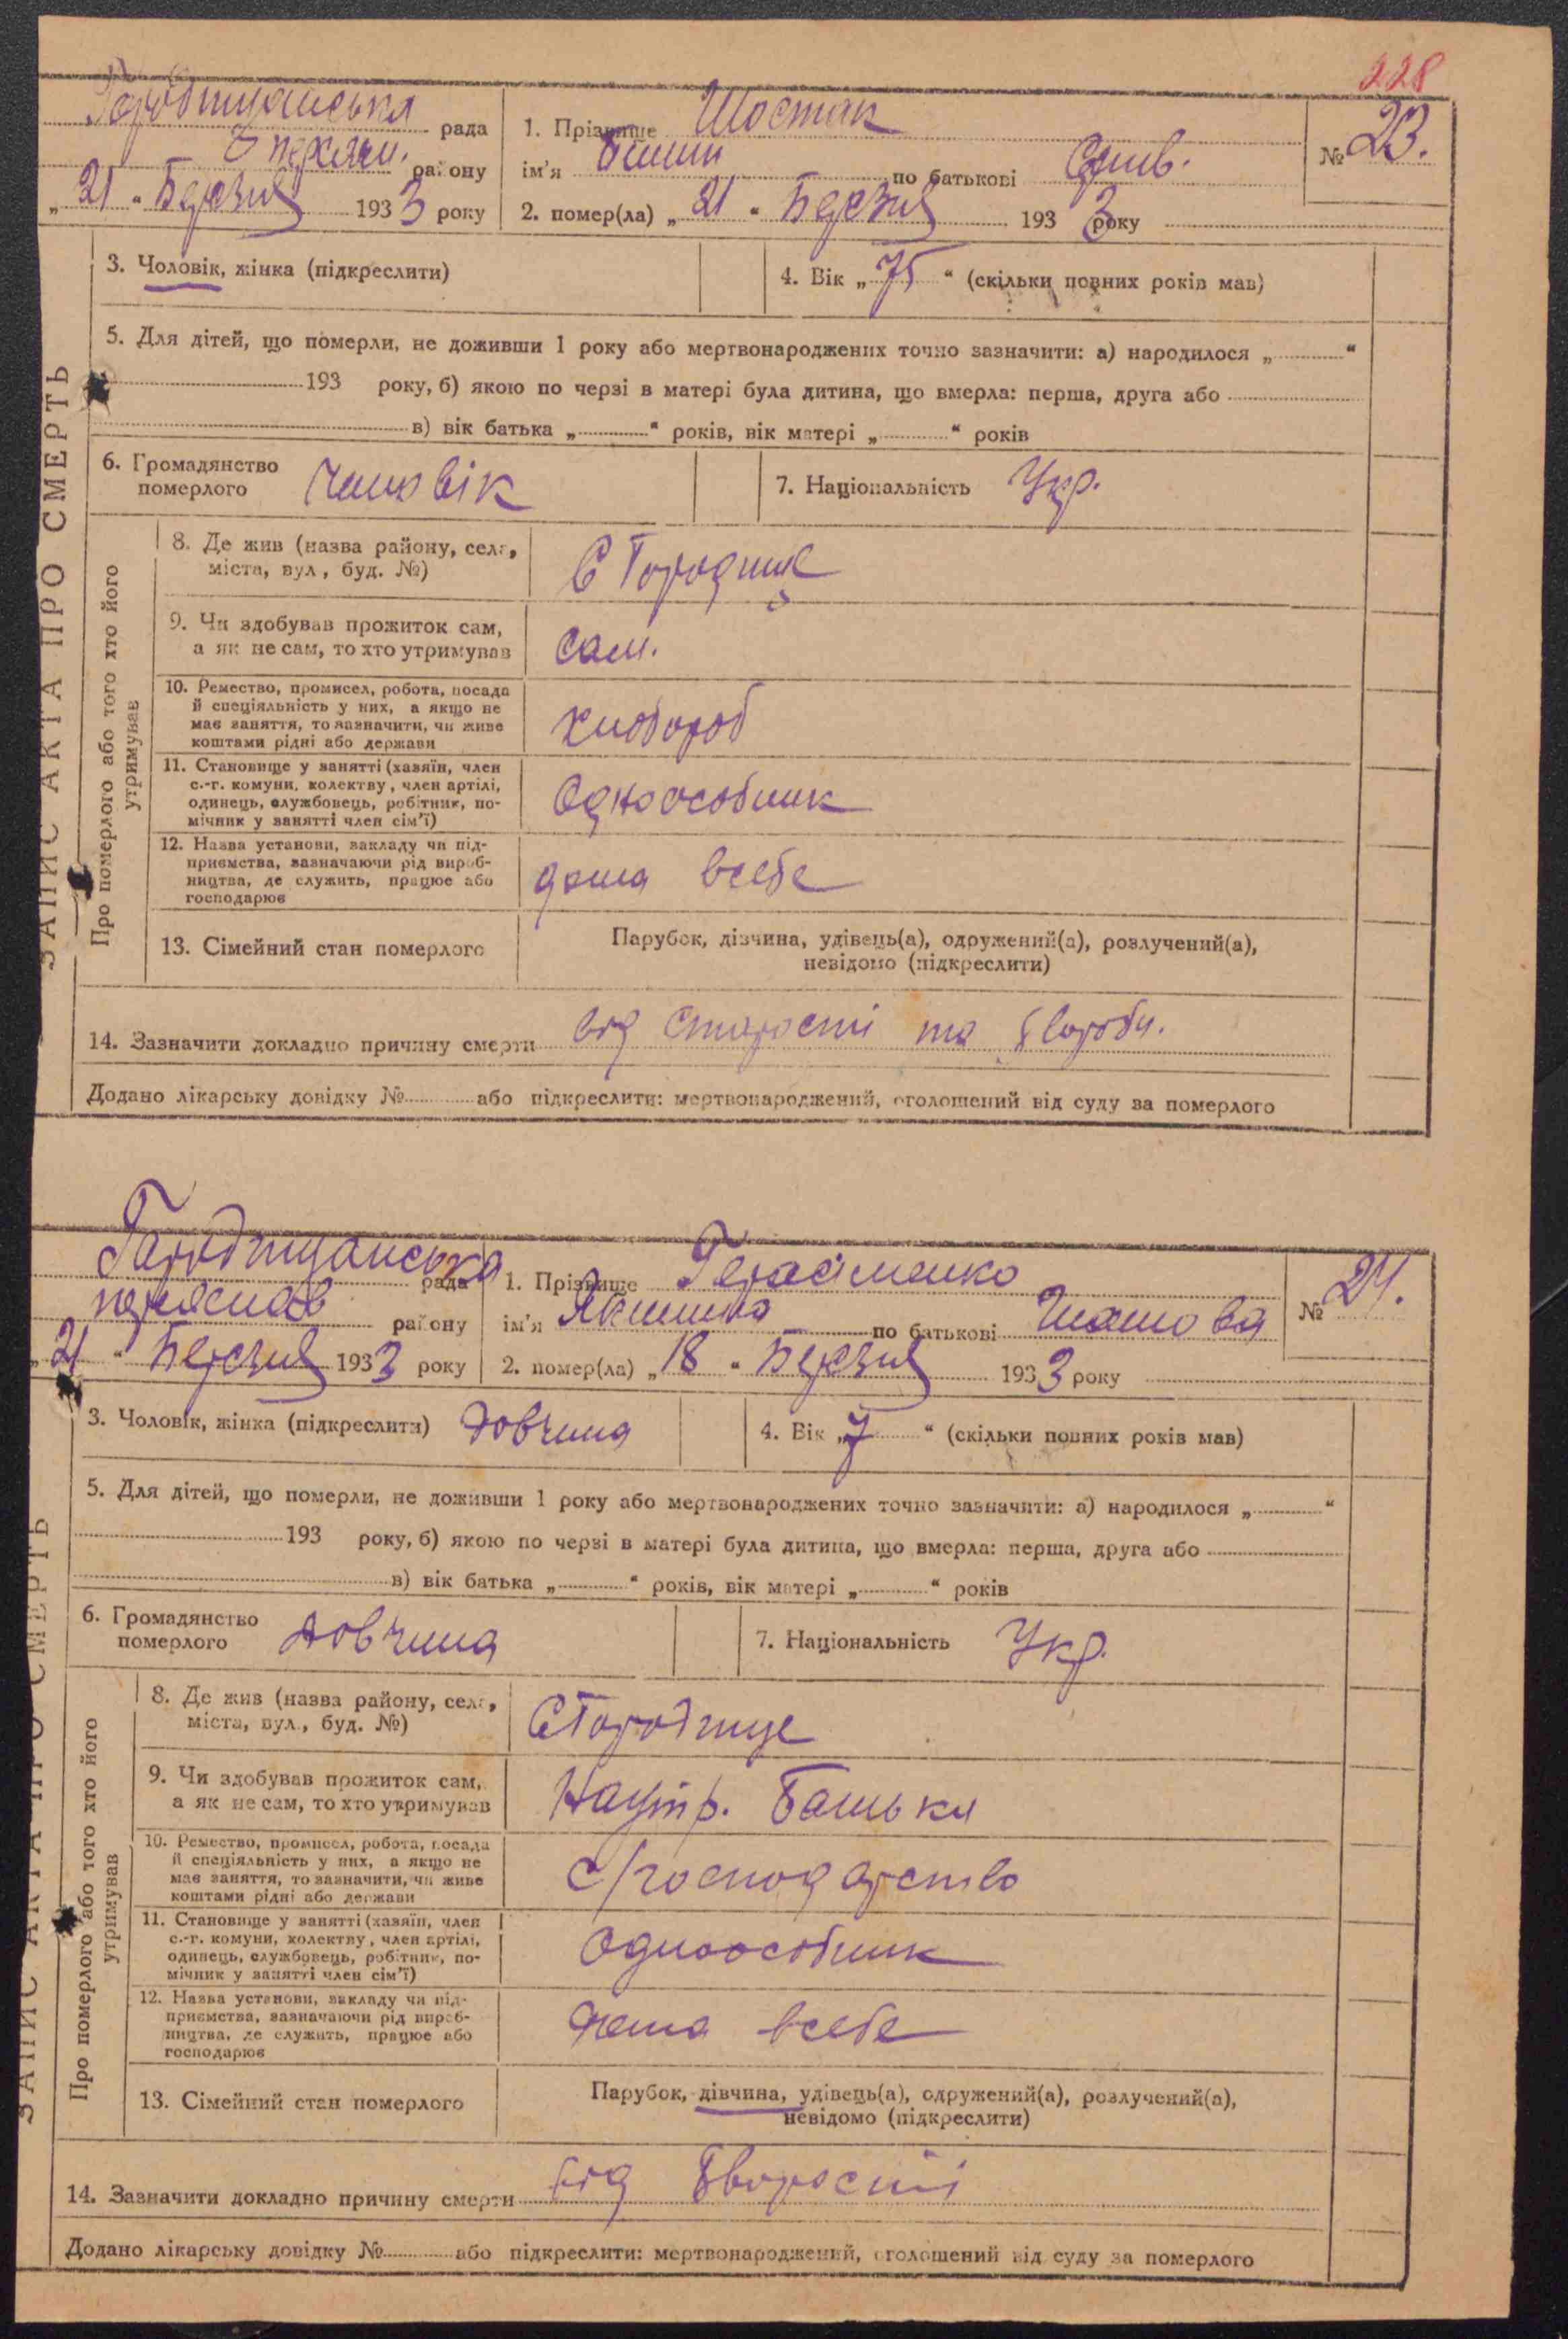 228
Городищанська рада
Переясл. району
„21“ Березня 1933 року
1. Прізвище Шостак
ім'я по батькові
2. помер(ла) „21“ Березня 1933 року
№ 23.
3. Чоловік, жінка (підкреслити)
4. Вік „75“ (скільки повних років мав)
5. Для дітей, що померли, не доживши 1 року або мертвонароджених точно зазначити: а) народилося „ “
193 року, б) якою по черзі в матері була дитина, що вмерла: перша, друга або
в) вік батька „ “ років, вік матері „ “ років
6. Громадянство
померлого
чоловік
7. Національність Укр.
ЗАПИС АКТА ПРО СМЕРТЬ
Про померлого або того хто його
утримував
8. Де жив (назва району, села,
міста, вул, буд. №)
С Городище
9. Чи здобував прожиток сам,
а як не сам, то хто утримував
сам.
10. Ремество, промисел, робота, посада
й спеціяльність у них, а якщо не
має заняття, то зазначити, чи живе
коштами рідні або держави
хлобороб
11. Становище у занятті (хазяїн, член
с.-г. комуни, колектву, член артілі,
одинець, службовець, робітник, по-
мічник у занятті член сім'ї)
Одноособник
12. Назва установи, закладу чи під-
приємства, зазначаючи рід вироб-
ництва, де служить, працює або
господарює
дома всебе
13. Сімейний стан померлого
Парубок, дівчина, удівець(а), одружений(а), розлучений(а),
невідомо (підкреслити)
14. Зазначити докладно причину смерти від старості та хвороби.
Додано лікарську довідку № або підкреслити: мертвонароджений, оголошений від суду за померлого
Городищанська рада
Переяслав району
„21“ Березня 1933 року
1. Прізвище Герасименко
ім'я по батькові
2. помер(ла) „18“ Березня 1933 року
№ 24.
3. Чоловік, жінка (підкреслити) Довчина
4. Вік „7“ (скільки повних років мав)
5. Для дітей, що померли, не доживши 1 року або мертвонароджених точно зазначити: а) народилося „ “
193 року, б) якою по черзі в матері була дитина, що вмерла: перша, друга або
в) вік батька „ “ років, вік матері „ “ років
6. Громадянство
померлого
Довчина
7. Національність Укр.
ЗАПИС АКТА ПРО СМЕРТЬ
Про померлого або того хто його
утримував
8. Де жив (назва району, села,
міста, вул., буд. №)
С Городище
9. Чи здобував прожиток сам,
а як не сам, то хто утримував
Наутр. Батька
10. Ремество, промисел, робота, посада
й спеціяльність у них, а якщо не
має заняття, то зазначити, чи живе
коштами рідні або держави
с/господарство
11. Становище у занятті (хазяїн, член
с.-г. комуни, колектву, член артілі,
одинець, службовець, робітник, по-
мічник у занятті член сім'ї)
Одноособник
12. Назва установи, закладу чи під-
приємства, зазначаючи рід вироб-
ництва, де служить, працює або
господарює
дома всебе
13. Сімейний стан померлого
Парубок, дівчина, удівець(а), одружений(а), розлучений(а),
невідомо (підкреслити)
14. Зазначити докладно причину смерти від
Додано лікарську довідку № або підкреслити: мертвонароджений, оголошений від суду за померлого